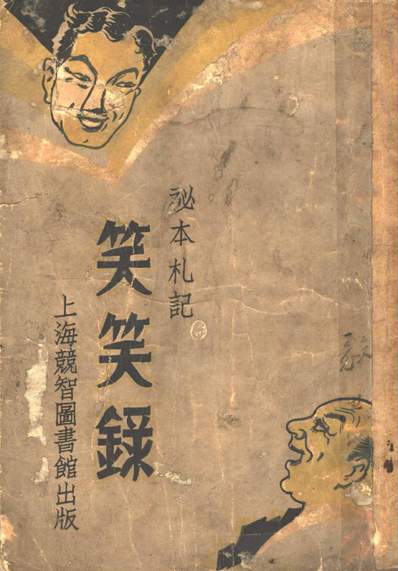 秘本札記
笑笑錄
上海競智圖書館出版